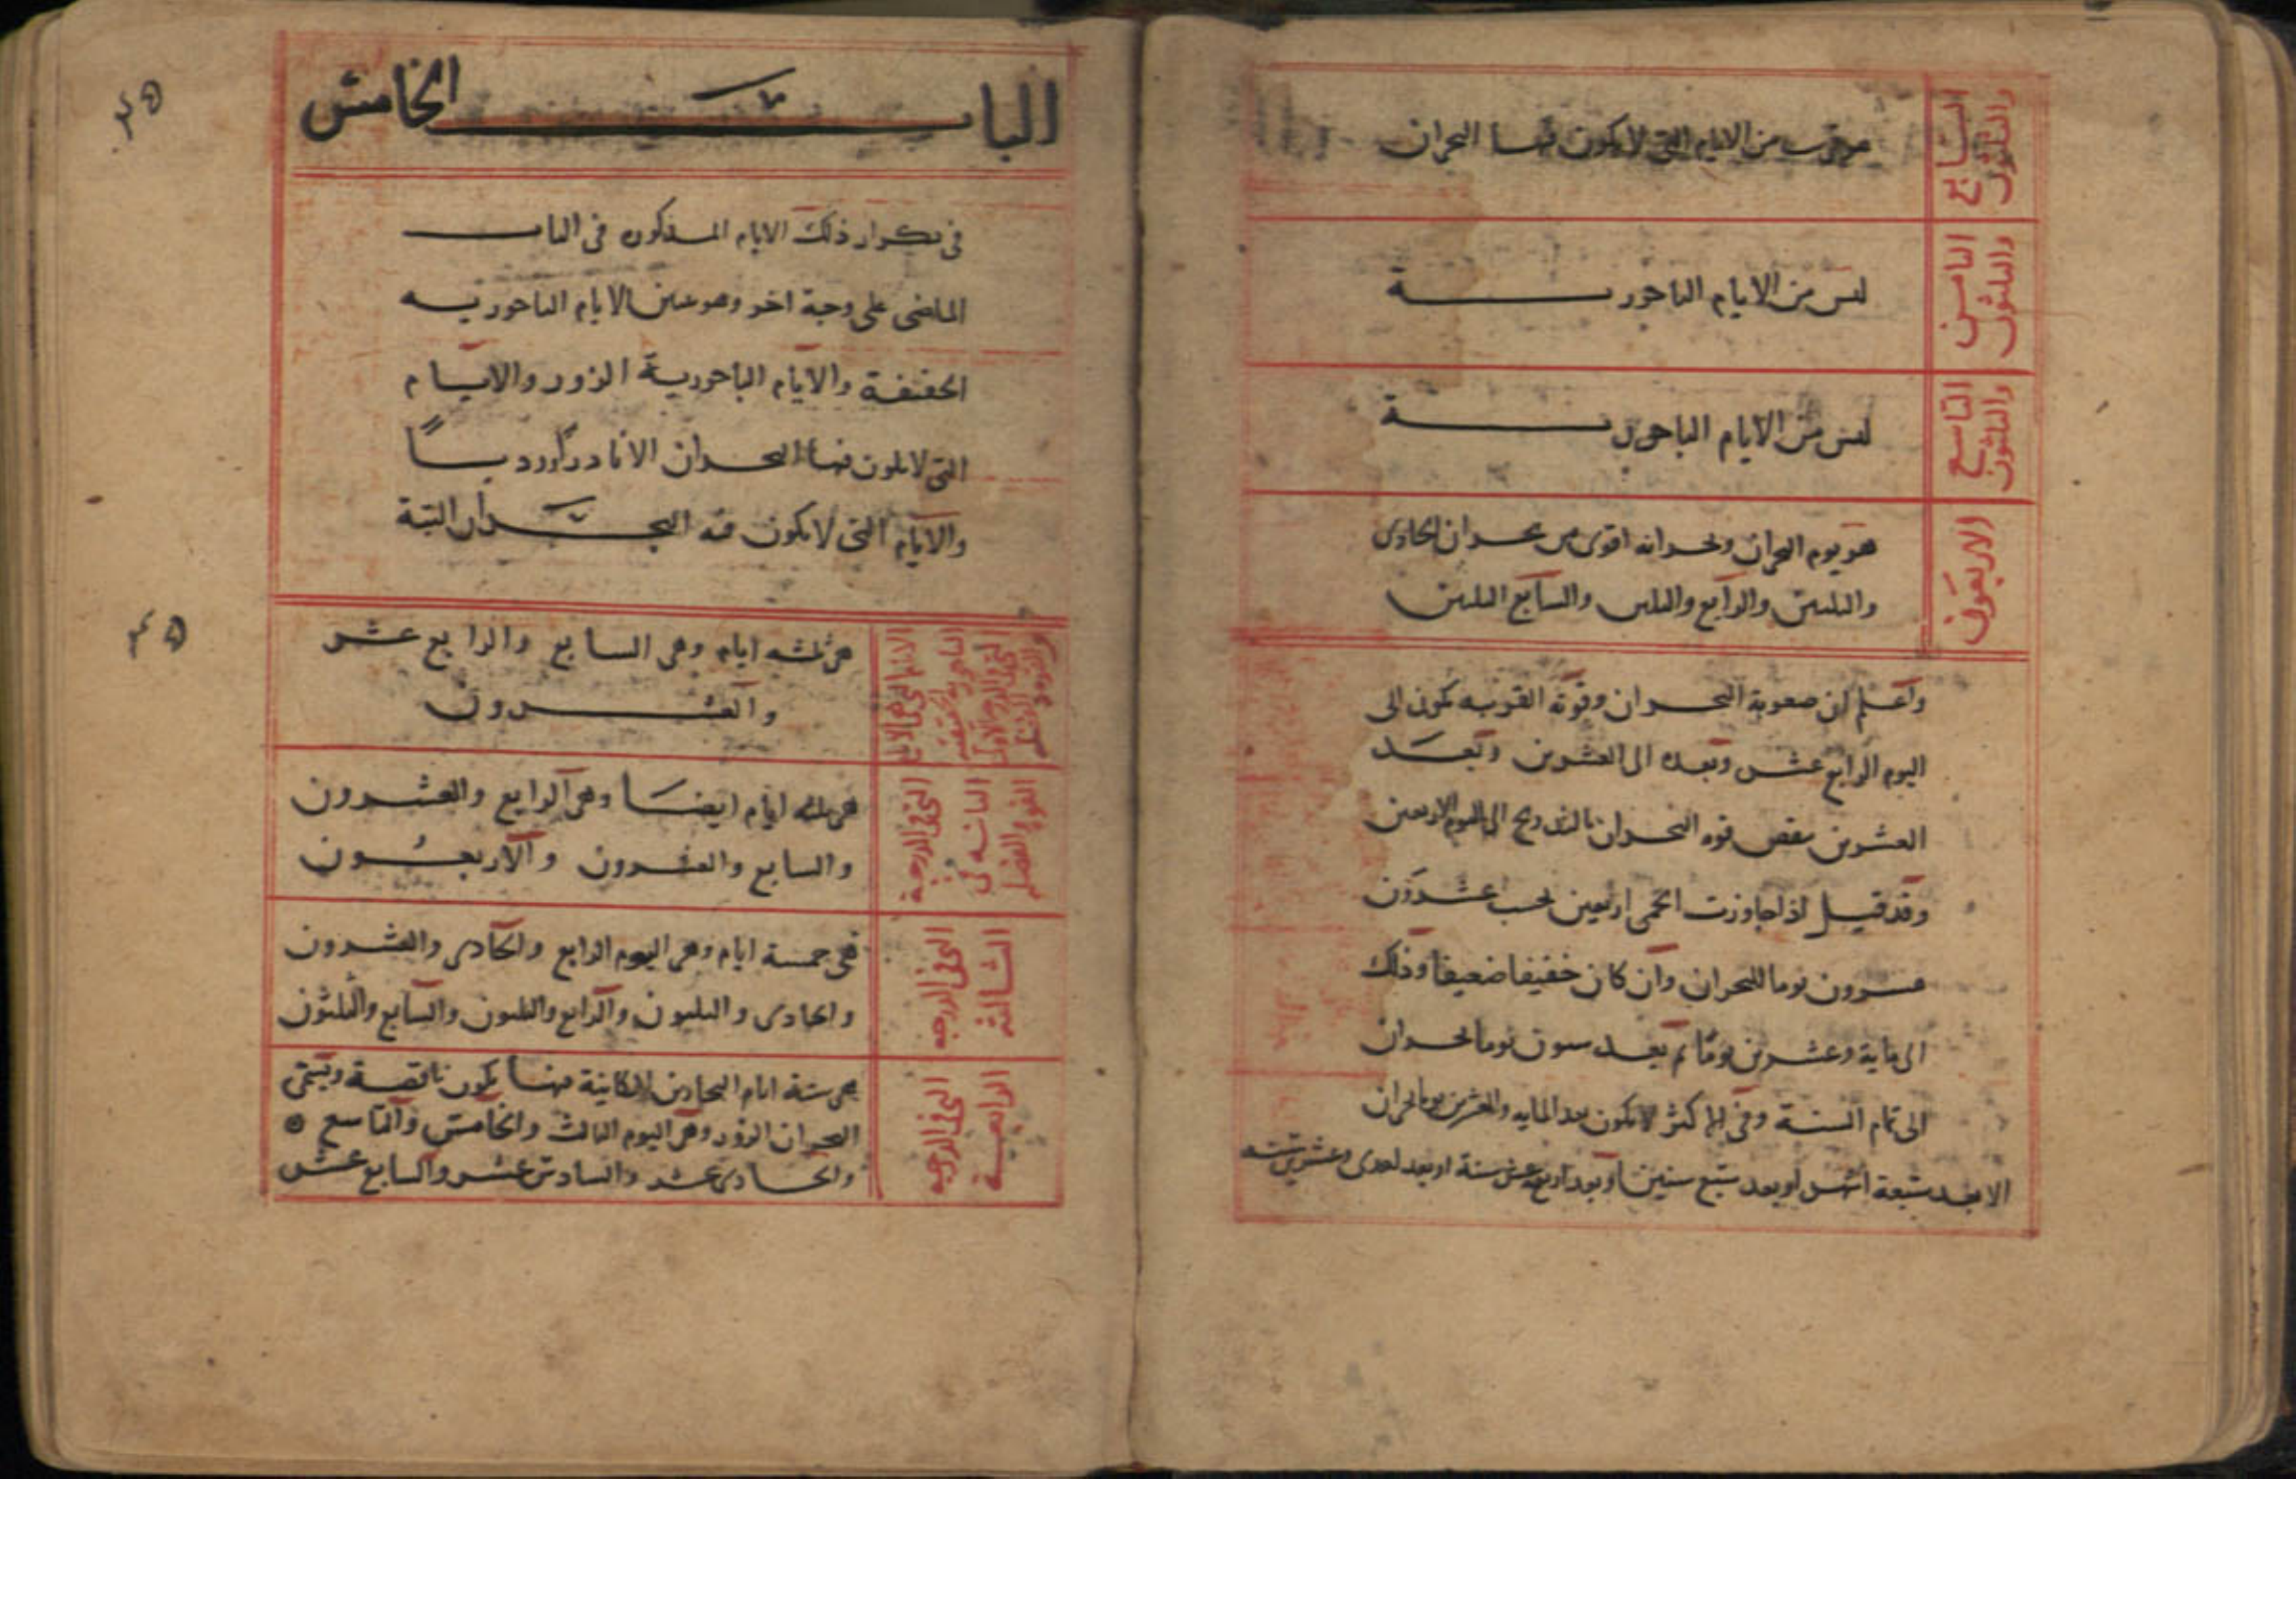 السابع
والثلثون
هو قريب من الايام التي لا يكون فيها البحران
الثامن
والثلثون
ليس من الايام الباحورية
التاسع
والثلثون
ليس من الايام الباحورية
الاربعون
هو يوم البحران وبحرانه اقوى من بحران الحادى
والثلثين والرابع والثلثين والسابع الثلثين
واعلم ان صعوبة البحران وقوته القويه يكون الى
اليوم الرابع عشر وبعده الى العشرين وبعد
العشرين ينقص قوه البحران بالتدريج الى اليوم الاربعين
وقد قيل اذا جاوزت الحمى اربعين يحسب عشرون
عشرون يوما للبحران وان كان خفيفا ضعيفا وذلك
الى ماية وعشرين يوما ثم يعد ستون يوما لحران
الى تمام السنة وفى الاكثر لا يكون بعد المايه والعشرين يوما بحران
الا بعد سبعة اشهر او بعد سبع سنين او بعد اربع عشر سنة او بعد احدى وعشرين سنه
الباب الخامس
٤٥
فى تكرار ذلك الايام المذكوره فى الباب
الماضى على وجة اخر وهو تعيين الايام الباحوريه
الحقيقة والايام الباحورية الزور والايام
التى لا يكون فيها البحران الا نادرا وردييا
والايام التى لا يكون فيه البحران البتة
٤٥
هى ثلثه ايام وهى السابع والرابع عشر
والعشرون
التى فى الدرجة
الثانيه فى
القوة والفضل
هى ثلثه ايام ايضا وهى الرابع والعشرون
والسابع والعشرون والاربعون
التى فى الدرجه
الثالثة
فهى خمسة ايام وهى اليوم الرابع والحادى والعشرون
والحادى والثلثون والرابع والثلثون والسابع والثلثون
التى فى الدرجه
الرابعة
هى ستة ايام البحارين الكاينة فيها يكون ناقصة ويسمى
البحران الزور وهى اليوم الثالث والخامس والتاسع
والحادى عشر والسادس عشر والسابع عشر